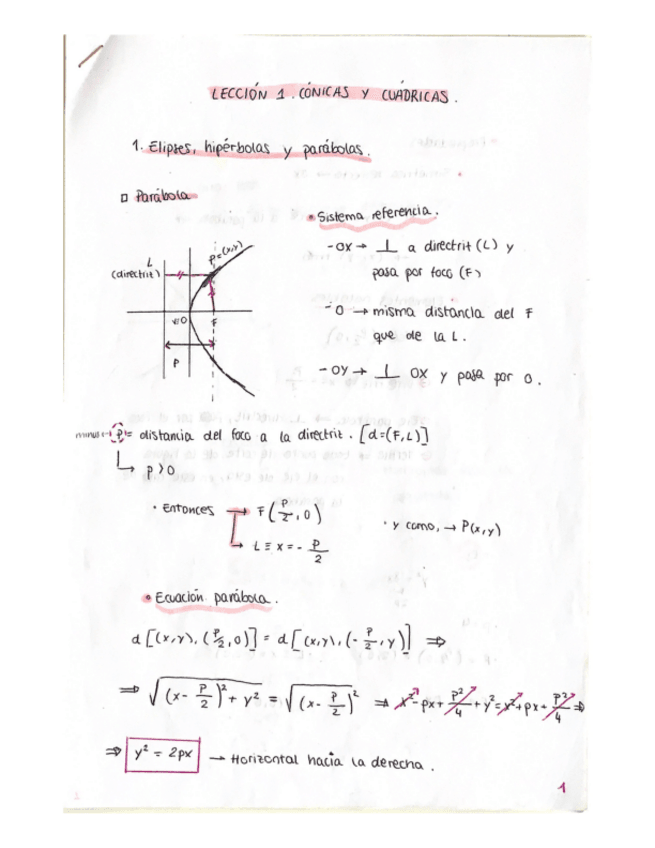 LECCIÓN 1. CÓNICAS Y CUÁDRICAS.
1. Elipses, hipérbolas y parábolas.
□ Parábola
• Sistema referencia.
- OX → ⊥ a directrit (L) y
pasa por foco (F)
- O → misma distancia del F
que de la L.
- OY → ⊥ OX y pasa por O.
L
(directrit)
P=(x,y)
O
F
P
minus ← p = distancia del foco a la directrit. [d=(F,L)]
↳ p>0
· Entonces → F(p/2, 0)
→ L ≡ x = - p/2
· y como, → P(x,y)
• Ecuación parábola.
d[(x,y), (p/2, 0)] = d[(x,y), (-p/2, y)] ⇒
⇒ √((x - p/2)² + y²) = √((x - p/2)²) ⇒ x² - px + p²/4 + y² = x² + px + p²/4 ⇒
⇒ y² = 2px → Horizontal hacia la derecha.
1